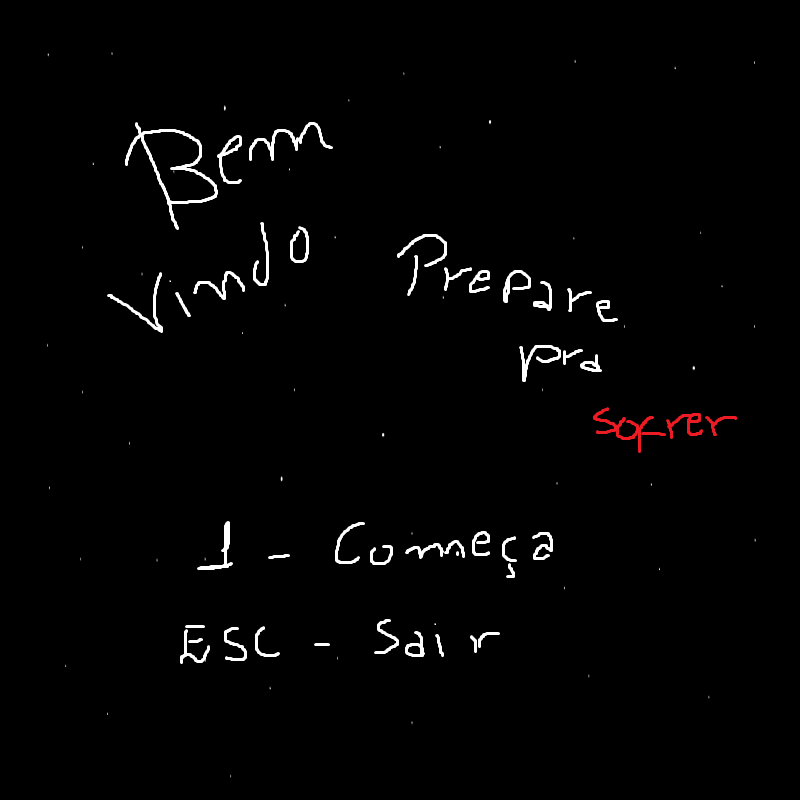 Bem
Vindo
Prepare
pra
sofrer
1 - Começa
ESC - Sair